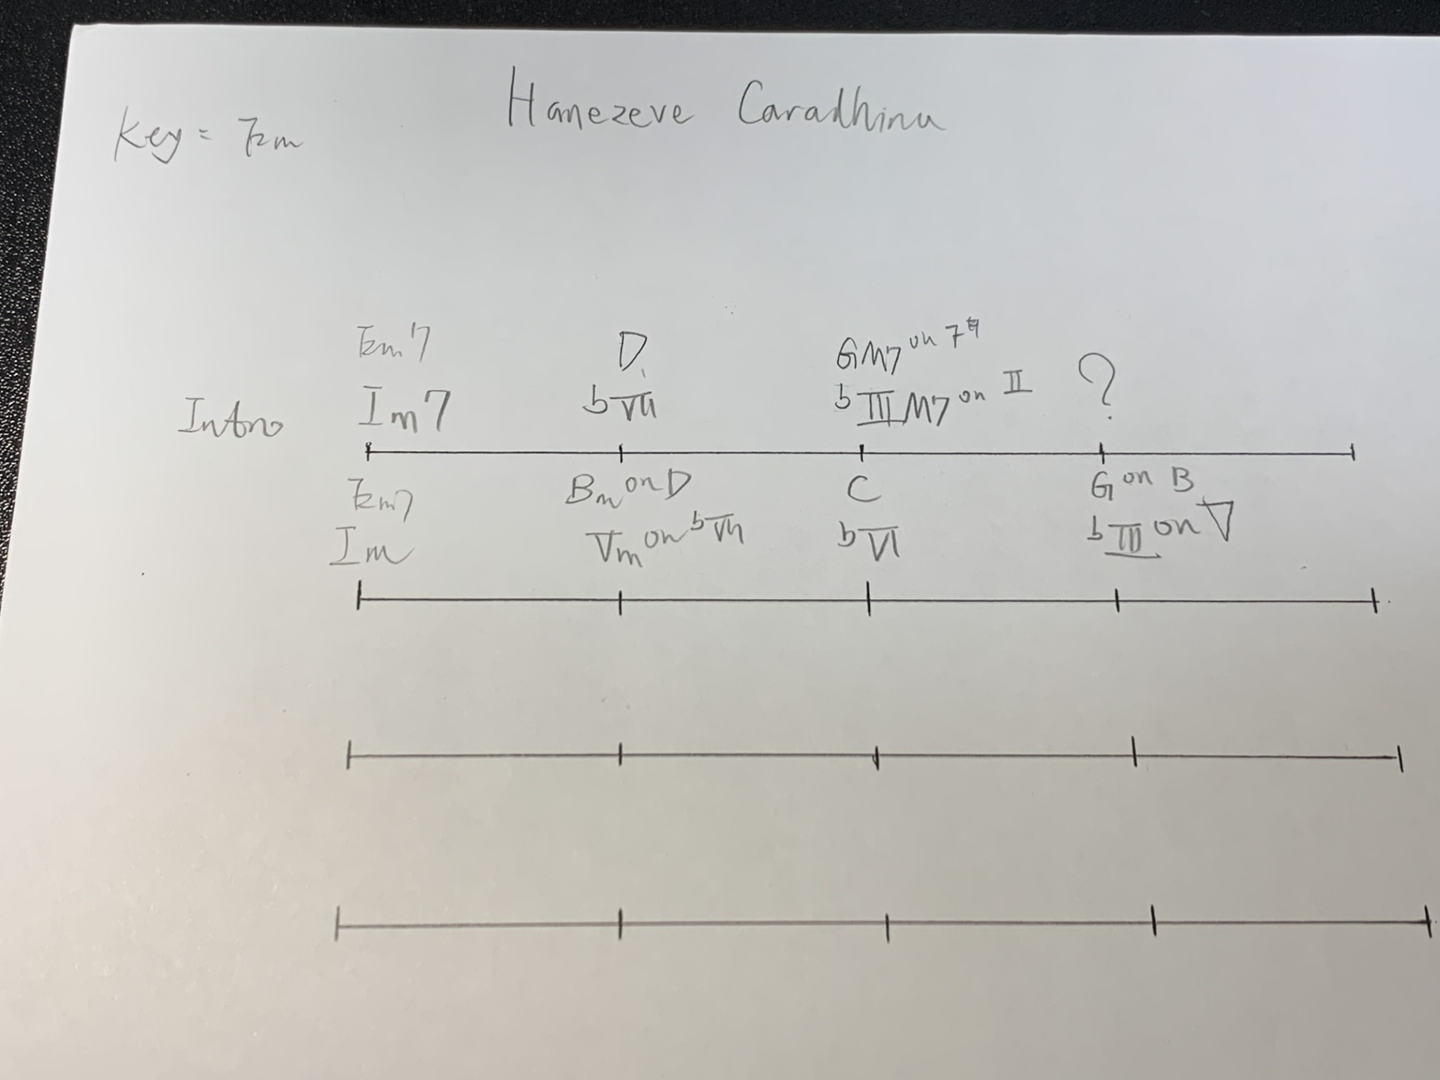 Hanezeve Caradhina
Key = Em
Em7 D GM7 on F#
Intro Im7 ♭VII ♭IIIM7 on II ?
Em7 Bm on D C G on B
Im Vm on ♭VII ♭VI ♭III on V